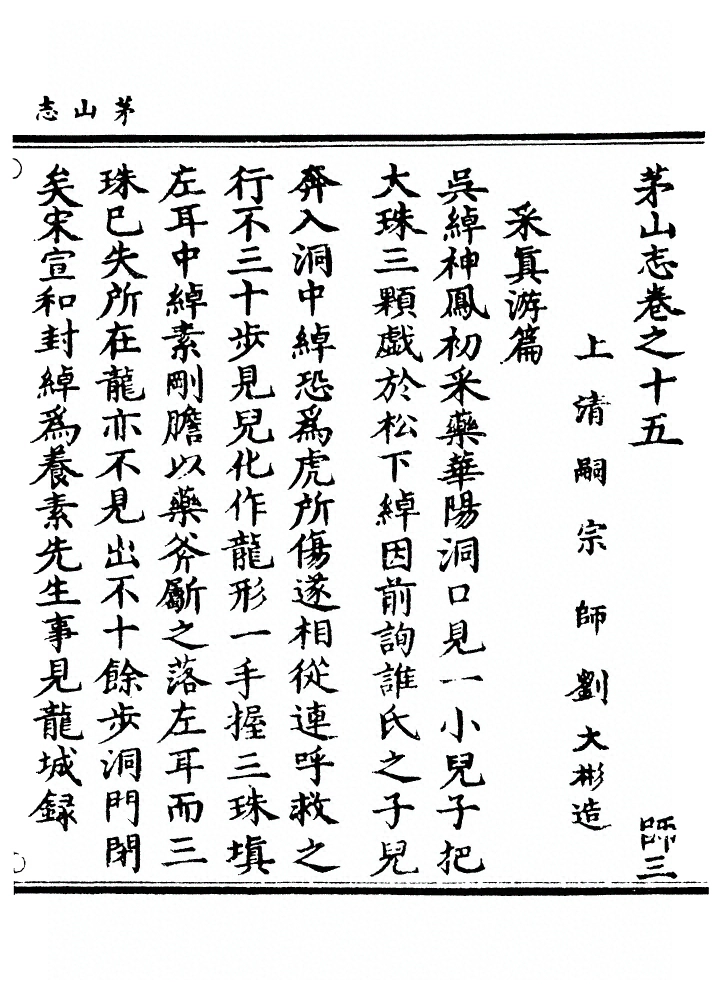 茅山志
茅山志卷之十五
師三
上清嗣宗師劉大彬造
采眞游篇
吳綽神鳳初采藥華陽洞口見一小兒子把
大珠三顆戲於松下綽因前詢誰氏之子兒
奔入洞中綽恐爲虎所傷遂相從連呼救之
行不三十步見兒化作龍形一手握三珠塡
左耳中綽素剛膽以藥斧斸之落左耳而三
珠已失所在龍亦不見出不十餘步洞門閉
矣宋宣和封綽爲養素先生事見龍城録